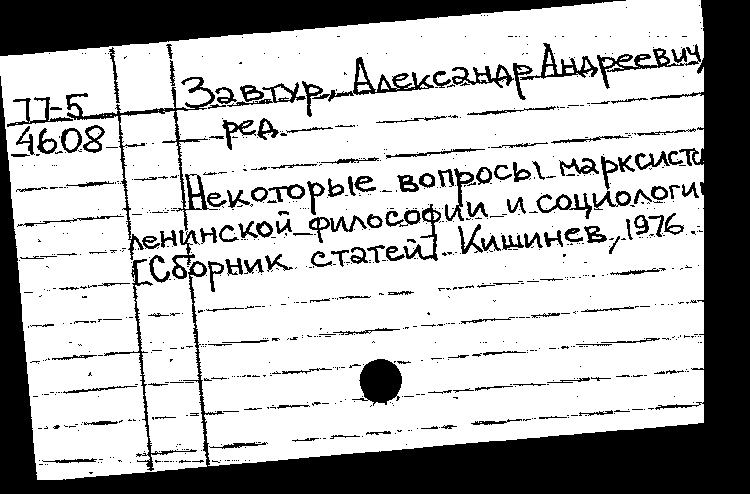 77-5
4608
Завтур, Александр Андреевич,
ред.
Некоторые вопросы марксистс
ленинской философии и социологии
[Сборник статей]. Кишинев, 1976.